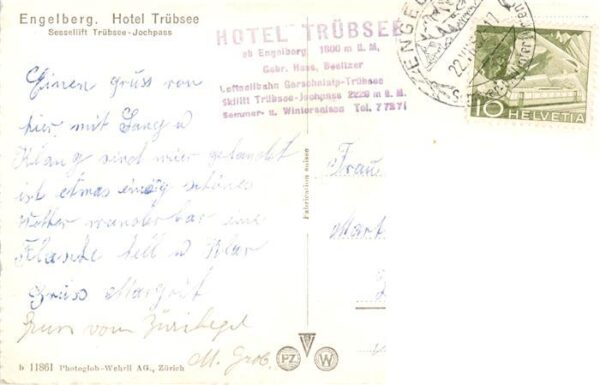 Engelberg. Hotel Trübsee
Sessellift Trübsee-Jochpass
HOTEL TRÜBSEE
ob Engelberg 1800 m ü. M.
Gebr. Hess, Besitzer
Luftseilbahn Gerschnialp-Trübsee
Skilift Trübsee-Jochpass 2220 m ü. M.
Sommer- u. Wintersaison Tel. 77371
ENGELBERG
22.VII
10 HELVETIA
Einen gruss von
hier mit Sang u
Klang sind wier gelandet
ist etwas einzig schönes
Wetter wunderbar eine
Flasche hell u klar
Gruss Margrit
Gruss vom
M. Grob.
Frau
Mart
Fabrication suisse
b 11861 Photoglob-Wehrli AG., Zürich
PZ W